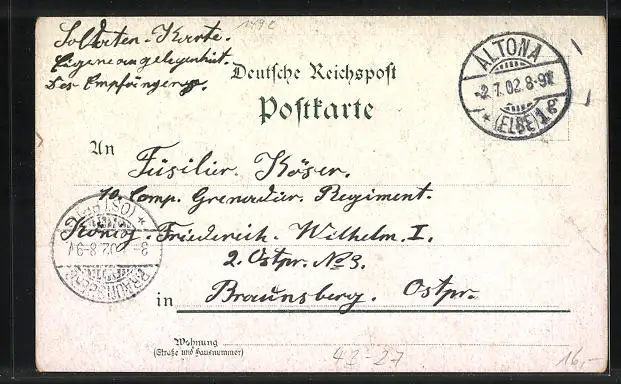 1492
Soldaten-Karte.
Eigene angelegenheit.
des Empfängers.
Deutsche Reichspost
Postkarte
ALTONA
-2.7.02.8-9V
* (ELBE) 1 g *
An Füsilier. Köser.
10. Comp. Grenadier. Regiment.
König. Friederich. Wilhelm. I.
2. Ostpr. No 3.
in Braunsberg. Ostpr.
BRAUNSBERG
3. 02. 8-9V
* (OSTPR.)
Wohnung
(Straße und Hausnummer)
43-27
16,-